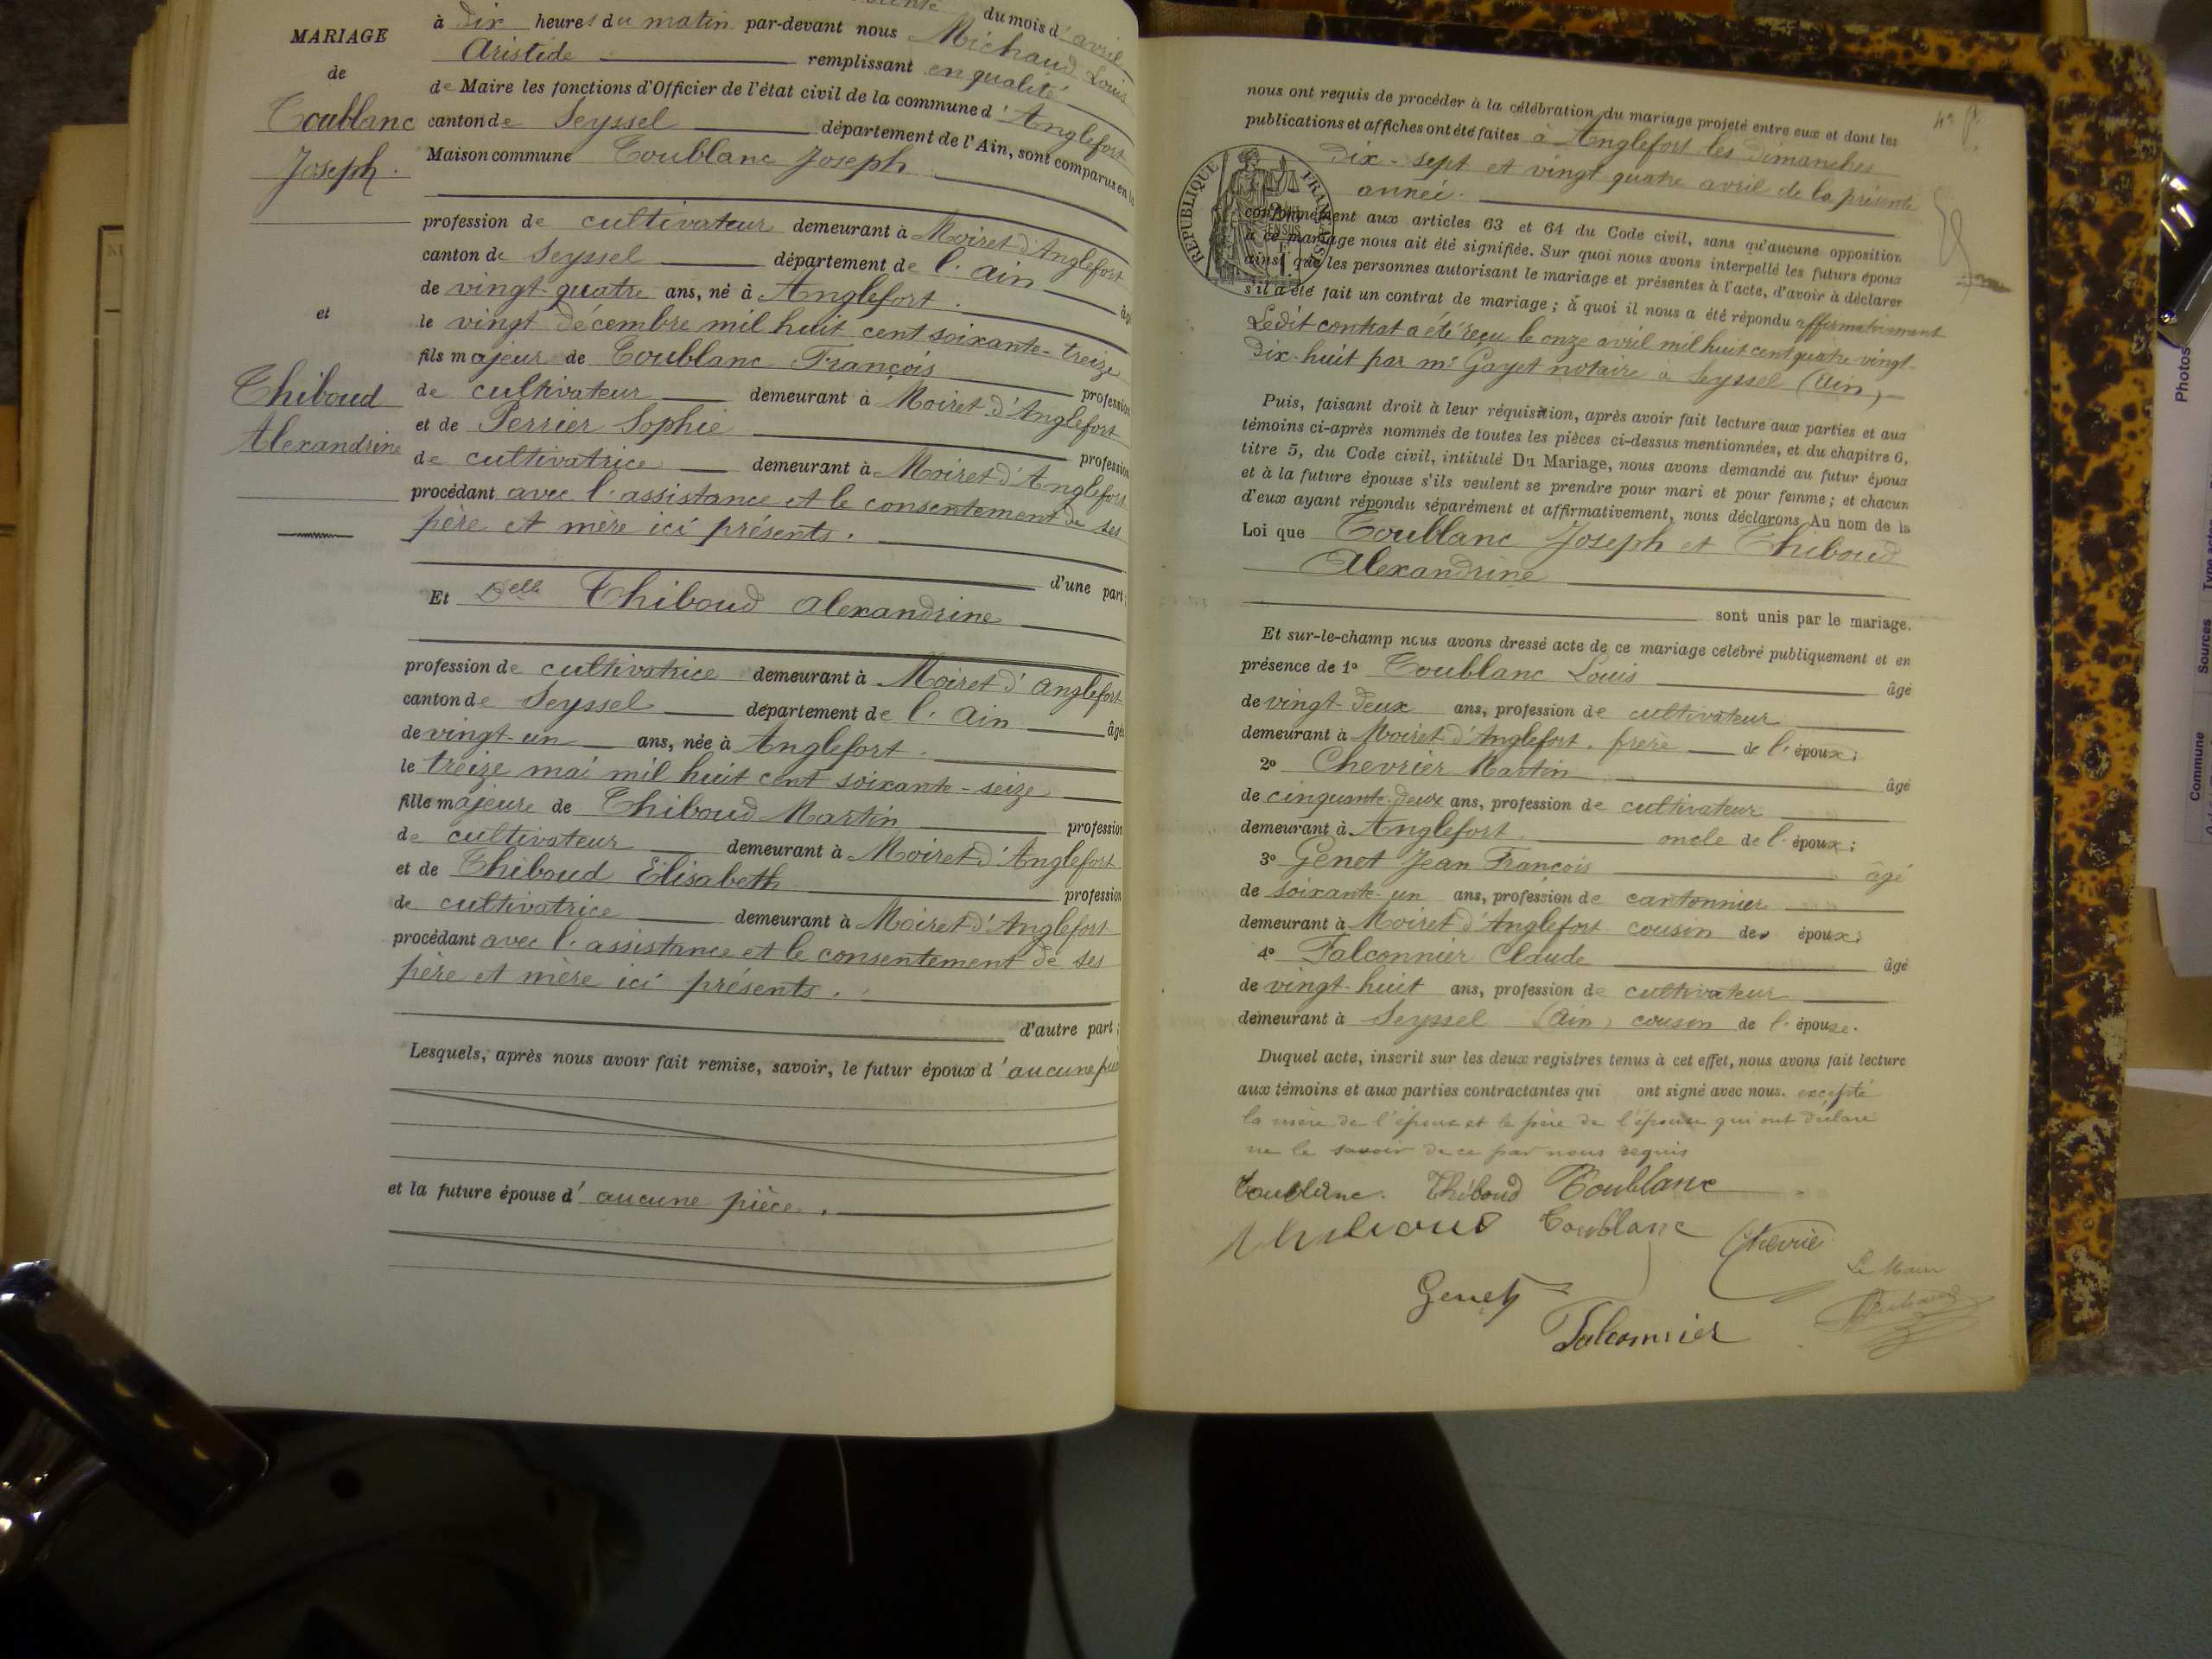 MARIAGE
de
Toublanc
Joseph.
et
Thiboud
Alexandrine
du mois d'avril
à Dix heures du matin par-devant nous Michaud Louis
Aristide remplissant en qualité
de Maire les fonctions d'Officier de l'état civil de la commune d'Anglefort
canton de Seyssel département de l'Ain, sont comparus en la
Maison commune Toublanc Joseph
profession de cultivateur demeurant à Moiret d'Anglefort
canton de Seyssel département de l'Ain âgé
de vingt-quatre ans, né à Anglefort.
le vingt décembre mil huit cent soixante-treize
fils majeur de Toublanc François profession
de cultivateur demeurant à Moiret d'Anglefort
et de Perrier Sophie profession
de cultivatrice demeurant à Moiret d'Anglefort
procédant avec l'assistance et le consentement de ses
père et mère ici présents.
d'une part;
Et Delle Thiboud Alexandrine
profession de cultivatrice demeurant à Moiret d'Anglefort
canton de Seyssel département de l'Ain âgée
de vingt-un ans, née à Anglefort.
le treize mai mil huit cent soixante-seize
fille majeure de Thiboud Martin profession
de cultivateur demeurant à Moiret d'Anglefort
et de Thiboud Elisabeth profession
de cultivatrice demeurant à Moiret d'Anglefort
procédant avec l'assistance et le consentement de ses
père et mère ici présents.
d'autre part;
Lesquels, après nous avoir fait remise, savoir, le futur époux d'aucune pièce
et la future épouse d'aucune pièce.
nous ont requis de procéder à la célébration du mariage projeté entre eux et dont les
publications et affiches ont été faites à Anglefort les Dimanches
Dix-sept et vingt quatre avril de la présente
année.
RÉPUBLIQUE FRANÇAISE
conformément aux articles 63 et 64 du Code civil, sans qu'aucune opposition
à ce mariage nous ait été signifiée. Sur quoi nous avons interpellé les futurs époux
ainsi que les personnes autorisant le mariage et présentes à l'acte, d'avoir à déclarer
s'il a été fait un contrat de mariage; à quoi il nous a été répondu affirmativement
Ledit contrat a été reçu le onze avril mil huit cent quatre vingt-
Dix-huit par me Gayet notaire à Seyssel (Ain)
Puis, faisant droit à leur réquisition, après avoir fait lecture aux parties et aux
témoins ci-après nommés de toutes les pièces ci-dessus mentionnées, et du chapitre 6,
titre 5, du Code civil, intitulé Du Mariage, nous avons demandé au futur époux
et à la future épouse s'ils veulent se prendre pour mari et pour femme; et chacun
d'eux ayant répondu séparément et affirmativement, nous déclarons Au nom de la
Loi que Toublanc Joseph et Thiboud
Alexandrine
sont unis par le mariage.
Et sur-le-champ nous avons dressé acte de ce mariage célébré publiquement et en
présence de 1º Toublanc Louis âgé
de vingt-Deux ans, profession de cultivateur
demeurant à Moiret d'Anglefort. frère de l'époux;
2º Chevrier Martin âgé
de cinquante-Deux ans, profession de cultivateur
demeurant à Anglefort oncle de l'époux;
3º Genet Jean François âgé
de soixante-un ans, profession de cantonnier
demeurant à Moiret d'Anglefort cousin des époux;
4º Falconnier Claude âgé
de vingt-huit ans, profession de cultivateur
demeurant à Seyssel (Ain) cousin de l'épouse.
Duquel acte, inscrit sur les deux registres tenus à cet effet, nous avons fait lecture
aux témoins et aux parties contractantes qui ont signé avec nous. excepté
la mère de l'époux et le père de l'épouse qui ont déclaré
ne le savoir de ce par nous requis
Toublanc. Thiboud Toublanc
Thiboud Toublanc Chevrié
Genet
Falconnier
Le Maire
Michaud
Photos
Sources
Commune